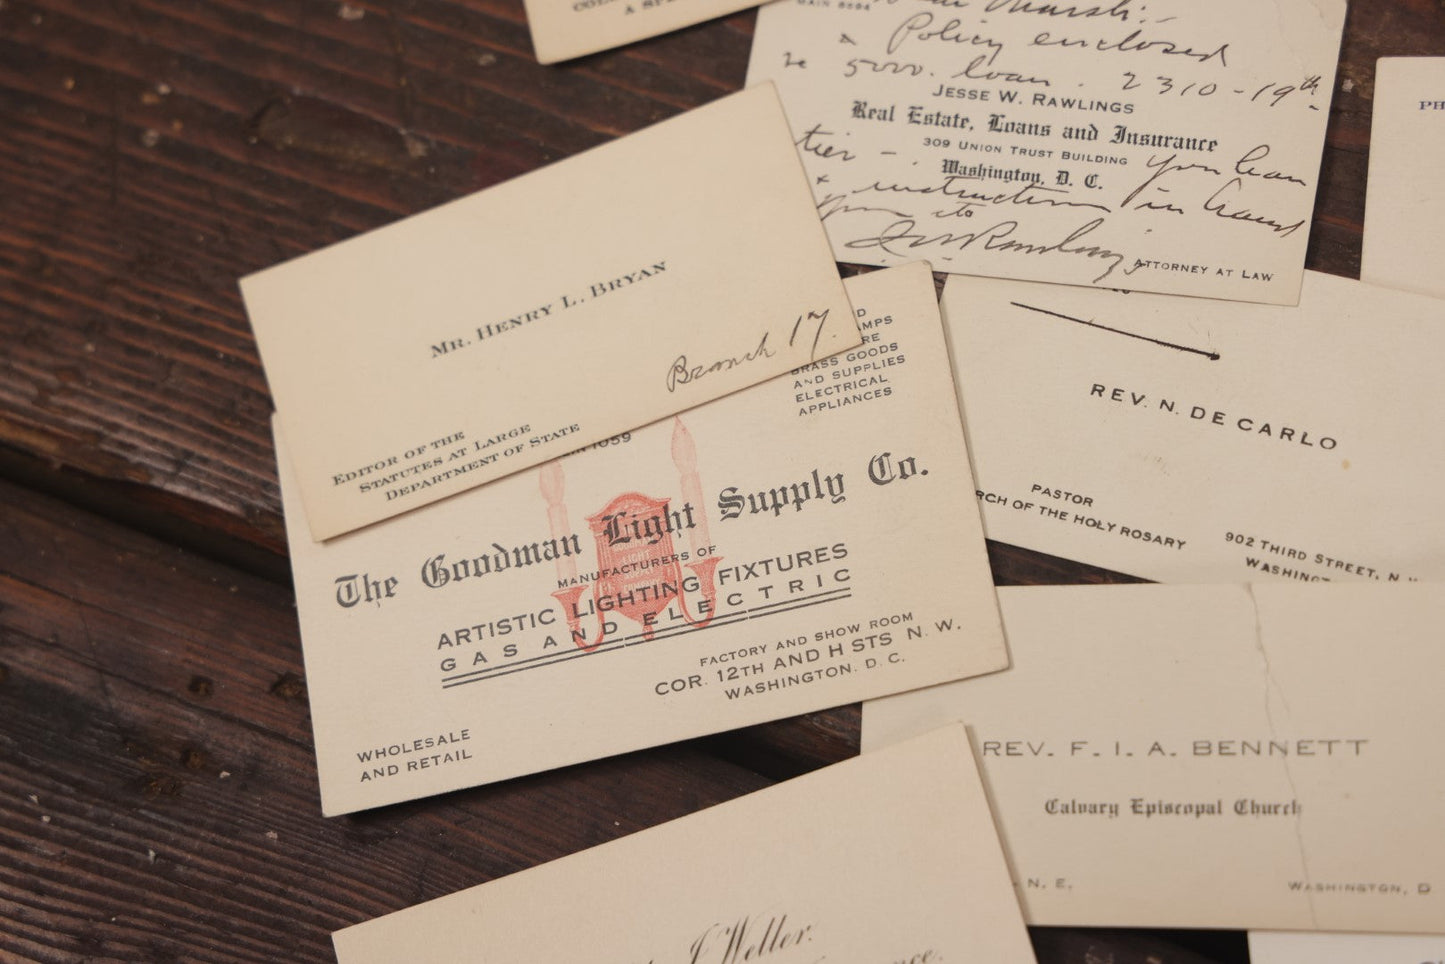 A
MAIN
Policy enclosed
5000. loan. 2310-19th
JESSE W. RAWLINGS
Real Estate, Loans and Insurance
309 UNION TRUST BUILDING
you have
Washington, D. C.
instructions in hand
ATTORNEY AT LAW
MR. HENRY L. BRYAN
Branch 17.
EDITOR OF THE
STATUTES AT LARGE
DEPARTMENT OF STATE
BRASS GOODS
AND SUPPLIES
ELECTRICAL
APPLIANCES
1059
The Goodman Light Supply Co.
MANUFACTURERS OF
ARTISTIC LIGHTING FIXTURES
GAS AND ELECTRIC
FACTORY AND SHOW ROOM
COR. 12TH AND H STS N. W.
WASHINGTON. D. C.
WHOLESALE
AND RETAIL
REV. N. DE CARLO
PASTOR
RCH OF THE HOLY ROSARY
902 THIRD STREET, N. W.
WASHINGT
REV. F. I. A. BENNETT
Calvary Episcopal Church
N. E.
WASHINGTON, D
J Weller.
PH